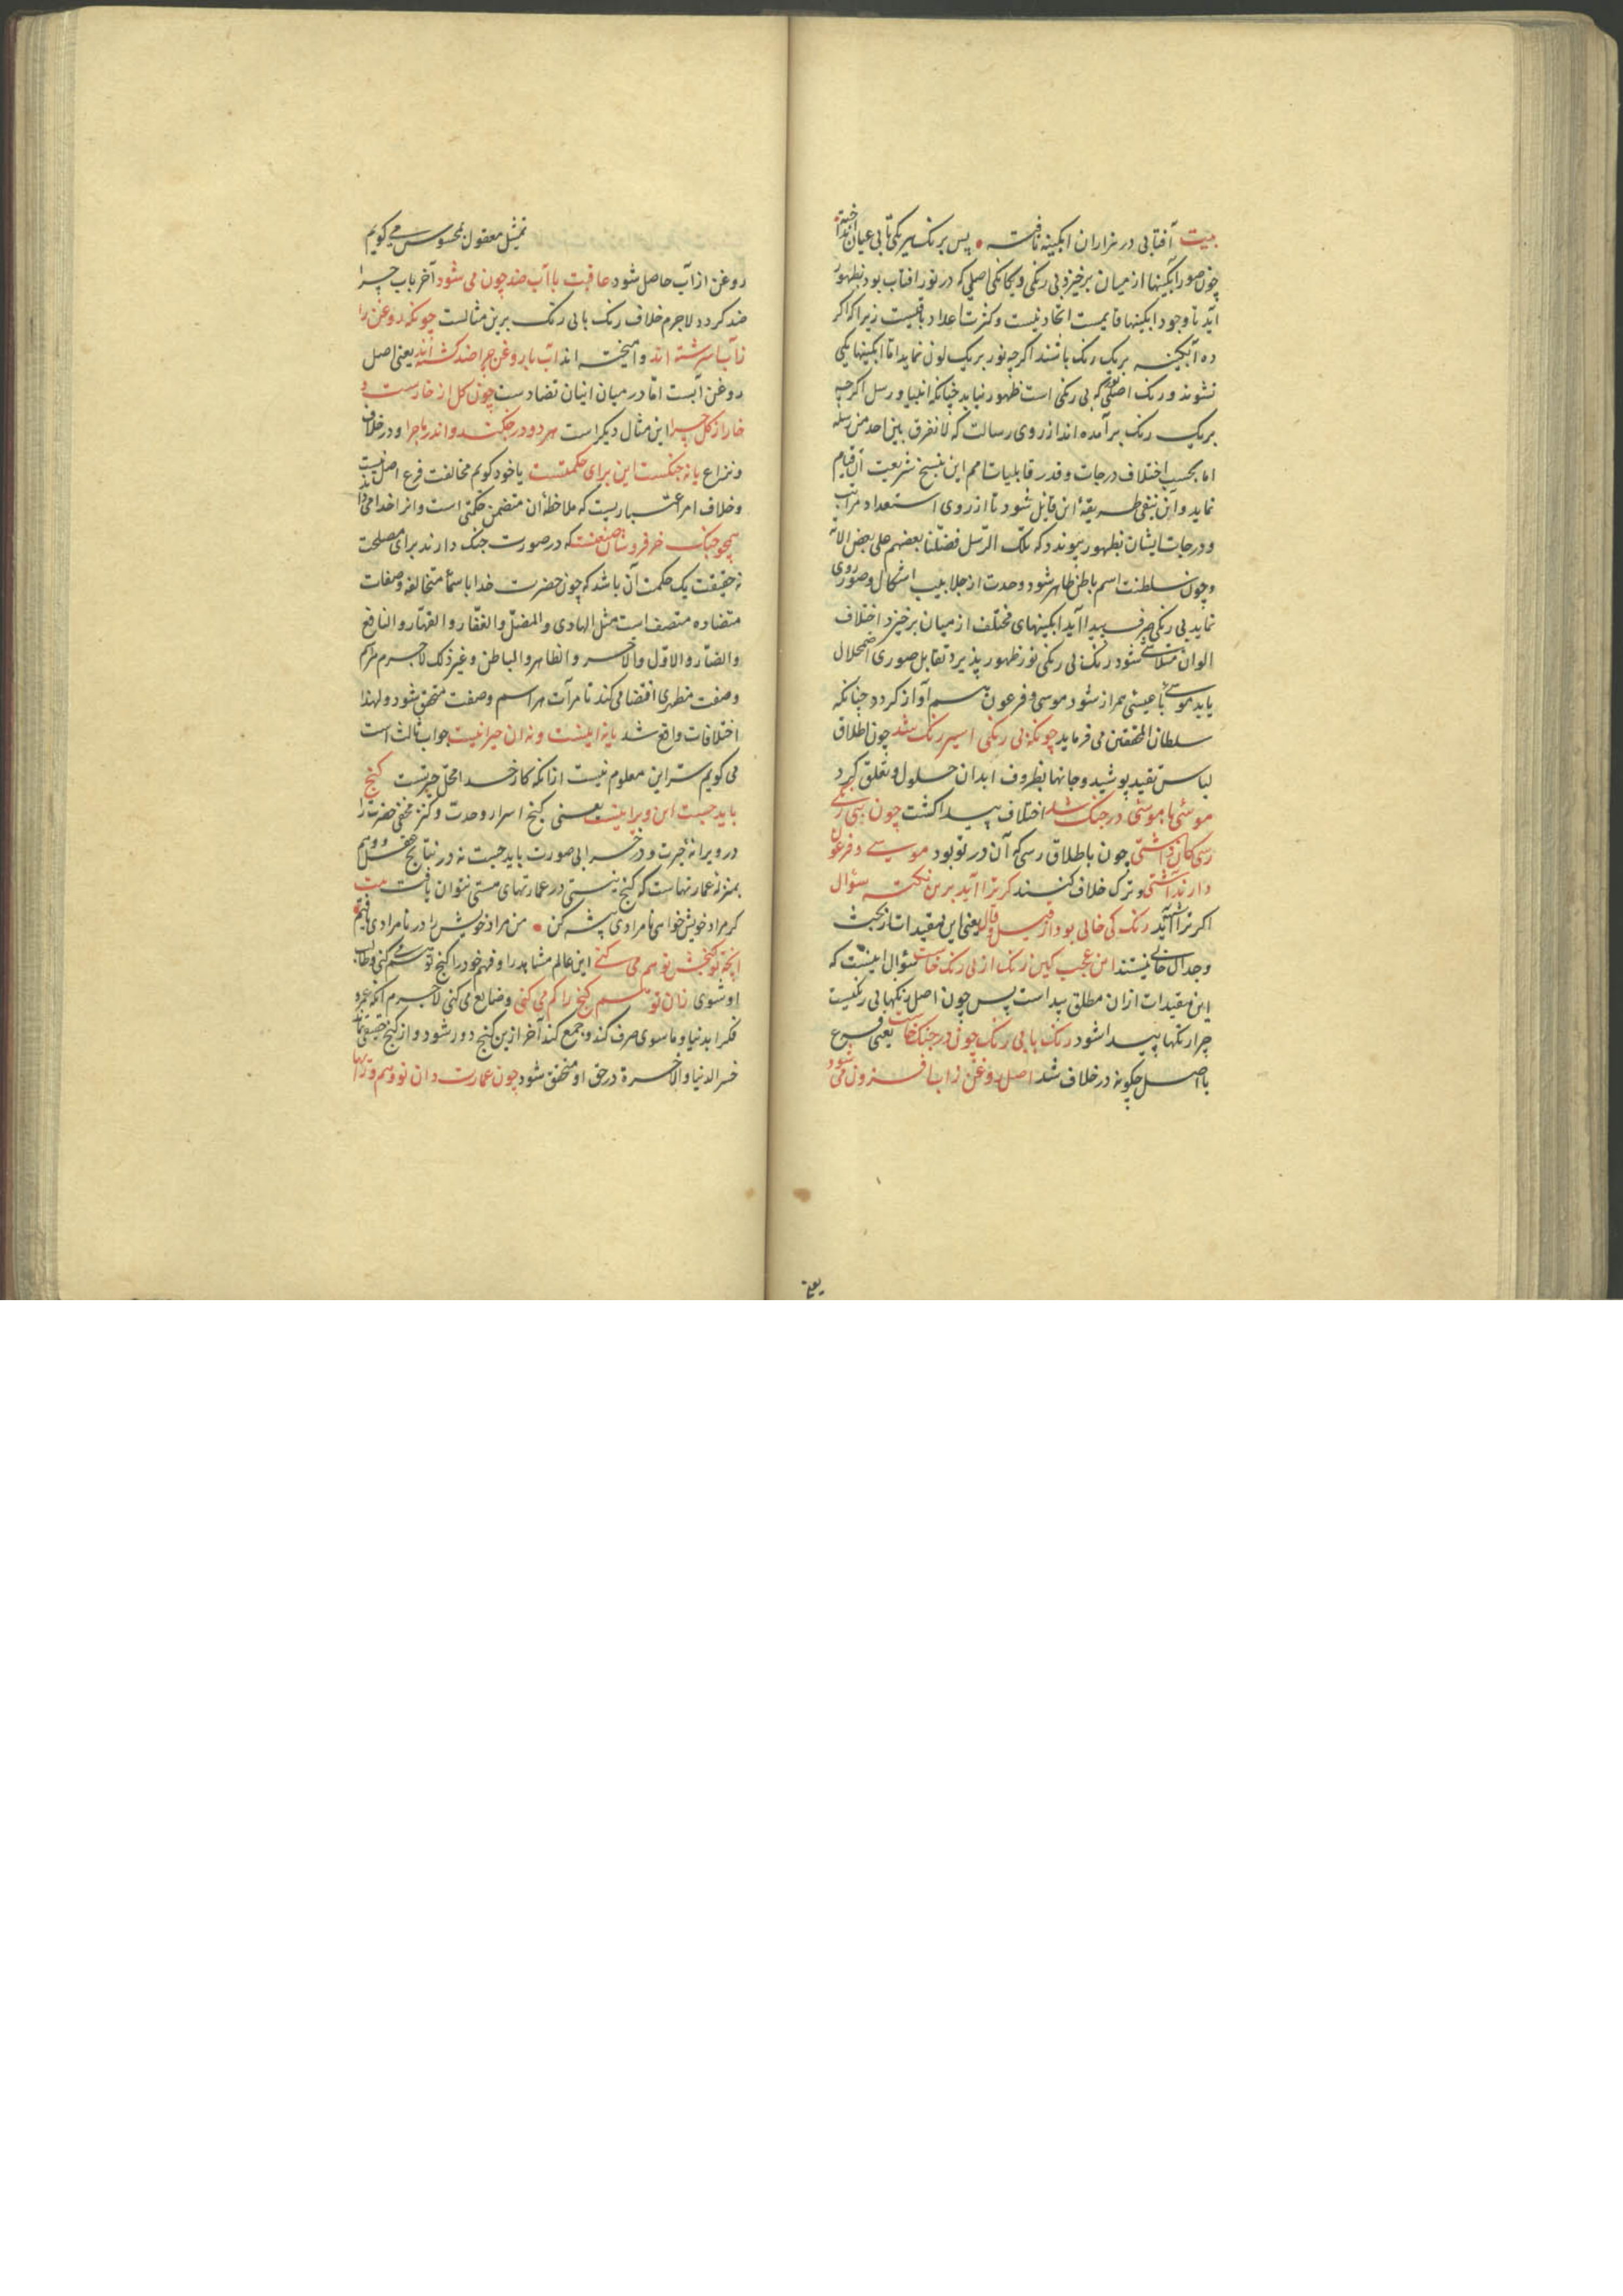 بیت آفتابی در هزاران ابکینه تافته • پس برنک هر یکی تابی عیان انداخته •
چون صور ابکینها از میان برخیزد بی رنکی ویکانکی اصلی که در نور افتاب بود بظهور
آید تا وجود ابکینها قایمست اتحاد نیست و کثرت اعداد باقیست زیرا که اکر
ده آبکینه بریک رنک باشند اکرچه نور بریک لون نماید اما ابکینها یکی
نشوند و رنک اصلی که بی رنکی است ظهور نیابد چنانکه انبیا و رسل اکرچه
بریک رنک برآمده اند از روی رسالت که لا نفرق بین احد من رسله
اما بحسب اختلاف درجات و قدر قابلیات امم این بنسخ شریعت آن قیام
نماید و این بنفی طریقهٔ این قایل شود تا از روی استعداد مراتب
و درجات ایشان بظهور پیوندد که تلک الرّسل فضّلنا بعضهم علی بعض الایه
و چون سلطنت اسم باطن ظاهر شود وحدت از جلابیب اشکال و صور روی
نماید بی رنکی صرف پیدا آید ابکینهای مختلف از میان برخیزد اختلاف
الوان متلاشی شود رنک بی رنکی نور ظهور پذیرد تقابل صوری اضمحلال
یابد موسی با عیسی همراز شود موسی و فرعون هم آواز کردد چنانکه
سلطان المحققین می فرماید چونکه بی رنکی اسیر رنک شد چون اطلاق
لباس تقید پوشید و جانها بظروف ابدان حلول و تعلق کرد
موسئی با موسئی در جنک شد اختلاف پیدا کشت چون ببی رنکی
رسی کان داشتی چون باطلاق رسی که آن در تو بود موسی و فرعون
دارند آشتی و ترک خلاف کنند کر ترا اید برین نکته سؤال
اکر ترا شبه آید رنک کی خالی بود از قیل و قال یعنی این مقیدات از بحث
و جدال خالی نیستند این عجب کین رنک از بی رنک خاست سؤال اینست که
این مقیدات ازان مطلق پیداست پس چون اصل رنکها بی رنکیست
چرا رنکها پیدا شود رنک با بی رنک چون در جنک خاست یعنی فرع
با اصل چکونه در خلاف شد اصل روغن ز اب افزون می شود
یعنی
تمثیل معقول بمحسوس می کویم
روغن از آب حاصل شود عاقبت با آب ضد چون می شود آخر باب چرا
ضد کردد لاجرم خلاف رنک با بی رنک برین مثالست چونکه روغن را
ز آب اسرشته اند و امیخته اند اب با روغن چرا ضد کشته اند یعنی اصل
روغن آبست اما در میان ایشان تضادست چون کل از خارست و
خار از کل چرا این مثال دیکر است هر دو در جنکند و اندر ماجرا و در خلاف
و نزاع یا نه جنکست این برای حکمتست یا خود کویم مخالفت فرع اصل نیست
و خلاف امر اعتباریست که ملاحظهٔ ان متضمن حکمتی است و انرا خدا می داند
همچو جنک خر فروشان صنعتست که در صورت جنک دارند برای مصلحت
نه حقیقت یک حکمت آن باشد که چون حضرت خدا باسماء متخالفه و صفات
متضاده متصف است مثل الهادی و المضلّ و الغفّار و القهّار و النافع
و الضّار و الاوّل و الاخر و الظاهر و الباطن و غیر ذلک لاجرم هر اسم
و صفت مظهری اقتضا می کند تا مرآت هر اسم و صفت متحقق شود و لهذا
اختلافات واقع شد یا نه اینست و نه ان حیرانیست جواب ثالث است
می کویم سر این معلوم نیست ازانکه کار خدا محل حیرتست کنج
باید جست این ویرانیست یعنی کنج اسرار وحدت و کنز مخفی حضرت را
در ویرانهٔ حیرت و در خرابی صورت باید جست نه در نتایج عقل و وهم
بمنزله عمارتهاست که کنج نیستی در عمارتهای هستی نتوان یافت بیت
کر مراد خویش خواهی نامرادی پیشه کن • من مراد خویش را در نامرادی یافتم •
انچه تو کنجش توهم می کنی این عالم مشاهد را و فهم خود را کنج توهم کنی و طالب
او شوی زان توهم کنج را کم می کنی و ضایع می کنی لاجرم آنکه عمر و
فکر ا بدنیا و ماسوی صرف کند و جمع کند آخر ازین کنج دور شود و از کنج حقیقی ماند
خسر الدنیا و الاخرة در حق او متحقق شود چون عمارت دان تو وهم و رایها